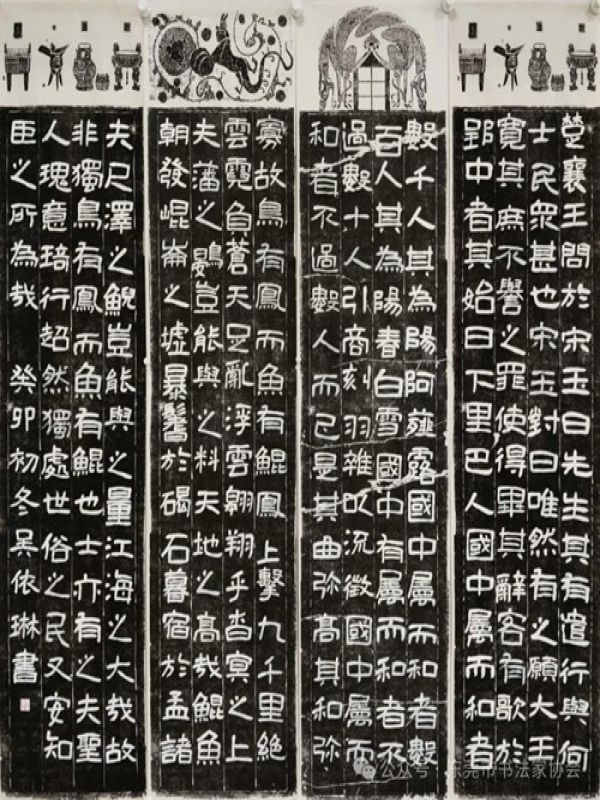 楚襄王問於宋玉曰先生其有遺行與何
士民眾甚也宋玉對曰唯然有之願大王
寬其庶不譽之罪使得畢其辭客有歌於
郢中者其始曰下里巴人國中屬而和者
數千人其為陽阿薤露國中屬而和者數
百人其為陽春白雪國中有屬而和者不
過數十人引商刻羽雜以流徵國中屬而
和者不過數人而已是其曲弥高其和弥
寡故鳥有鳳而魚有鯤鳳上擊九千里絕
雲霓負蒼天足亂浮雲翱翔乎杳冥之上
夫藩之鷃豈能與之料天地之高哉鯤魚
朝發崐崙之墟暴鬐於碣石暮宿於孟諸
夫尺澤之鯢豈能與之量江海之大哉故
非獨鳥有鳳而魚有鯤也士亦有之夫聖
人瑰意琦行超然獨處世俗之民又安知
臣之所為哉 癸卯初冬吳依琳書
公众号 · 东莞市书法家协会